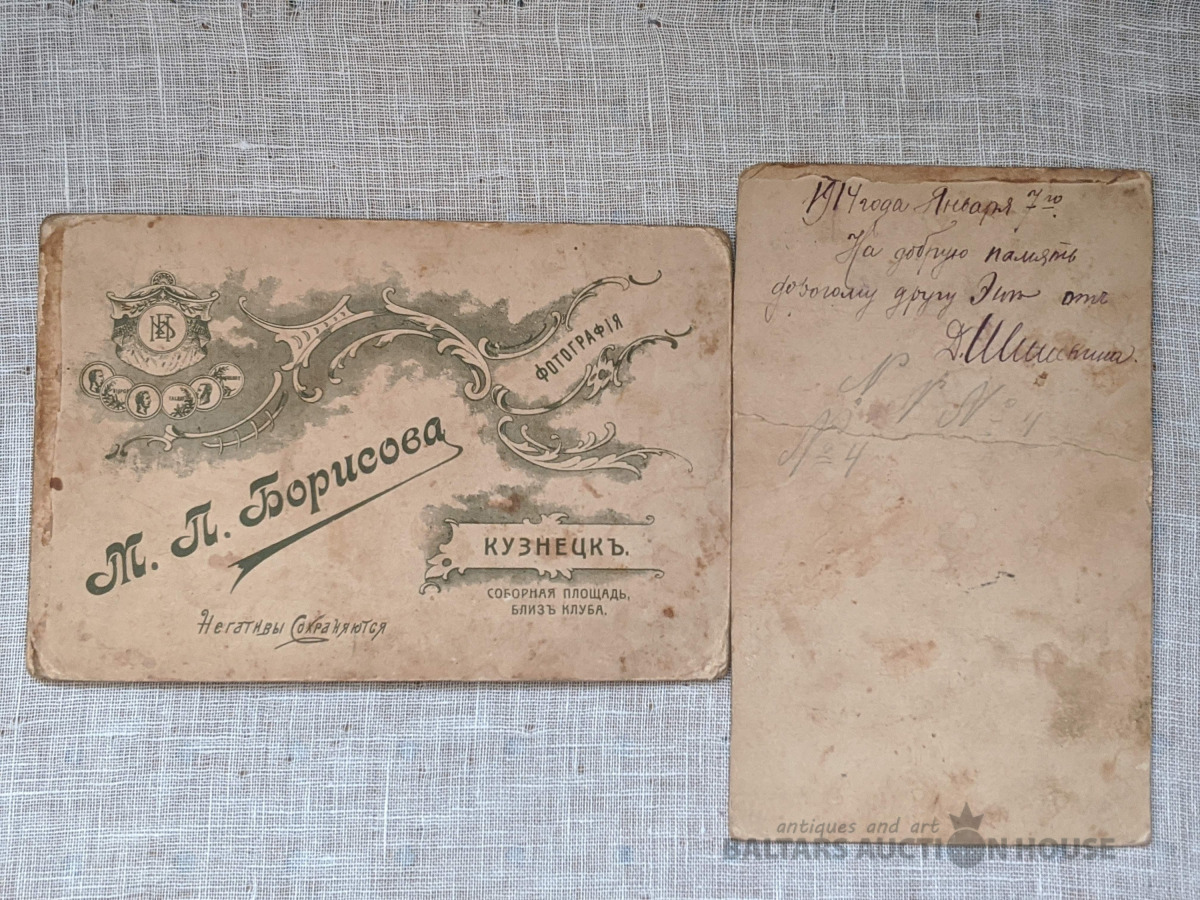 ФОТОГРАФІЯ
М. П. Борисова
КУЗНЕЦКЪ.
СОБОРНАЯ ПЛОЩАДЬ,
БЛИЗЪ КЛУБА.
Негативы Сохраняются
1914 года Января 7го
На добрую память
другу отъ
Д. Шишкина.
N N N° 4
N° 4
antiques and art
BALTARS AUCTION HOUSE